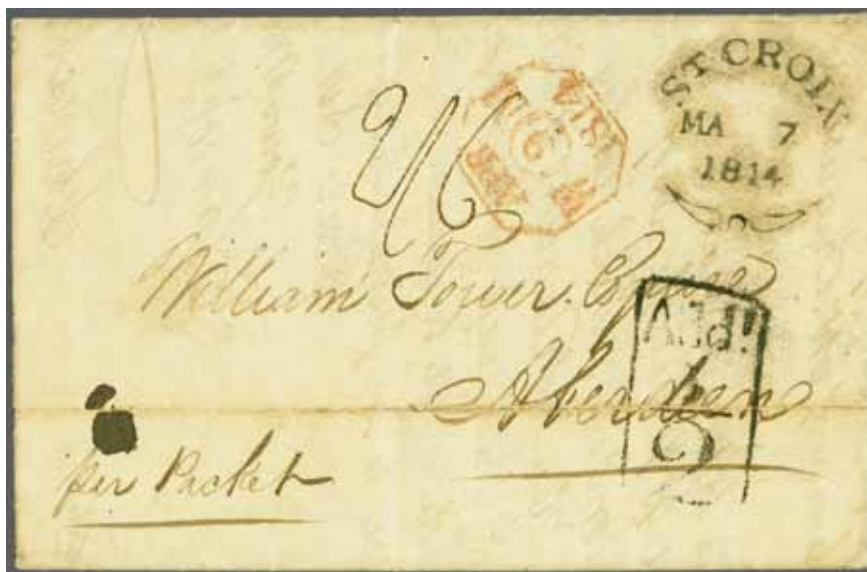 ST CROIX
MA 7
1814
2/6
William Tower Esquire
Aberdeen
per Packet